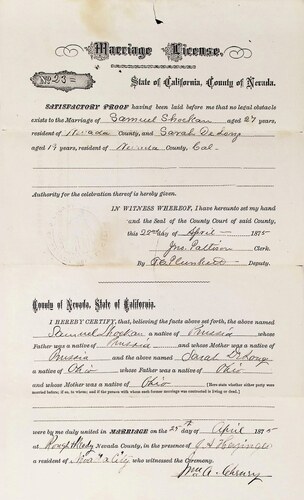 Marriage License.
No 23
State of California, County of Nevada.
SATISFACTORY PROOF having been laid before me that no legal obstacle
exists to the Marriage of Samuel Shockan aged 27 years,
resident of Nevada County, and Sarah DeLong
aged 19 years, resident of Nevada County, Cal.
Authority for the celebration thereof is hereby given.
IN WITNESS WHEREOF, I have hereunto set my hand
and the Seal of the County Court of said County,
this 22nd day of April 1875
Jno. Pattison Clerk.
By Deputy.
County of Nevada, State of California.
I HEREBY CERTIFY, that, believing the facts above set forth, the above named
Samuel Shockan a native of Prussia whose
Father was a native of Prussia and whose Mother was a native of
Prussia and the above named Sarah DeLong
a native of Ohio whose Father was a native of Ohio
and whose Mother was a native of Ohio [Here state whether either party was
married before; if so, to whom; and if the person with whom such former marriage was contracted is living or dead.]
were by me duly united in MARRIAGE on the 25th day of April 1875
at Rough & Ready Nevada County, in the presence of
a resident of City who witnessed the Ceremony.